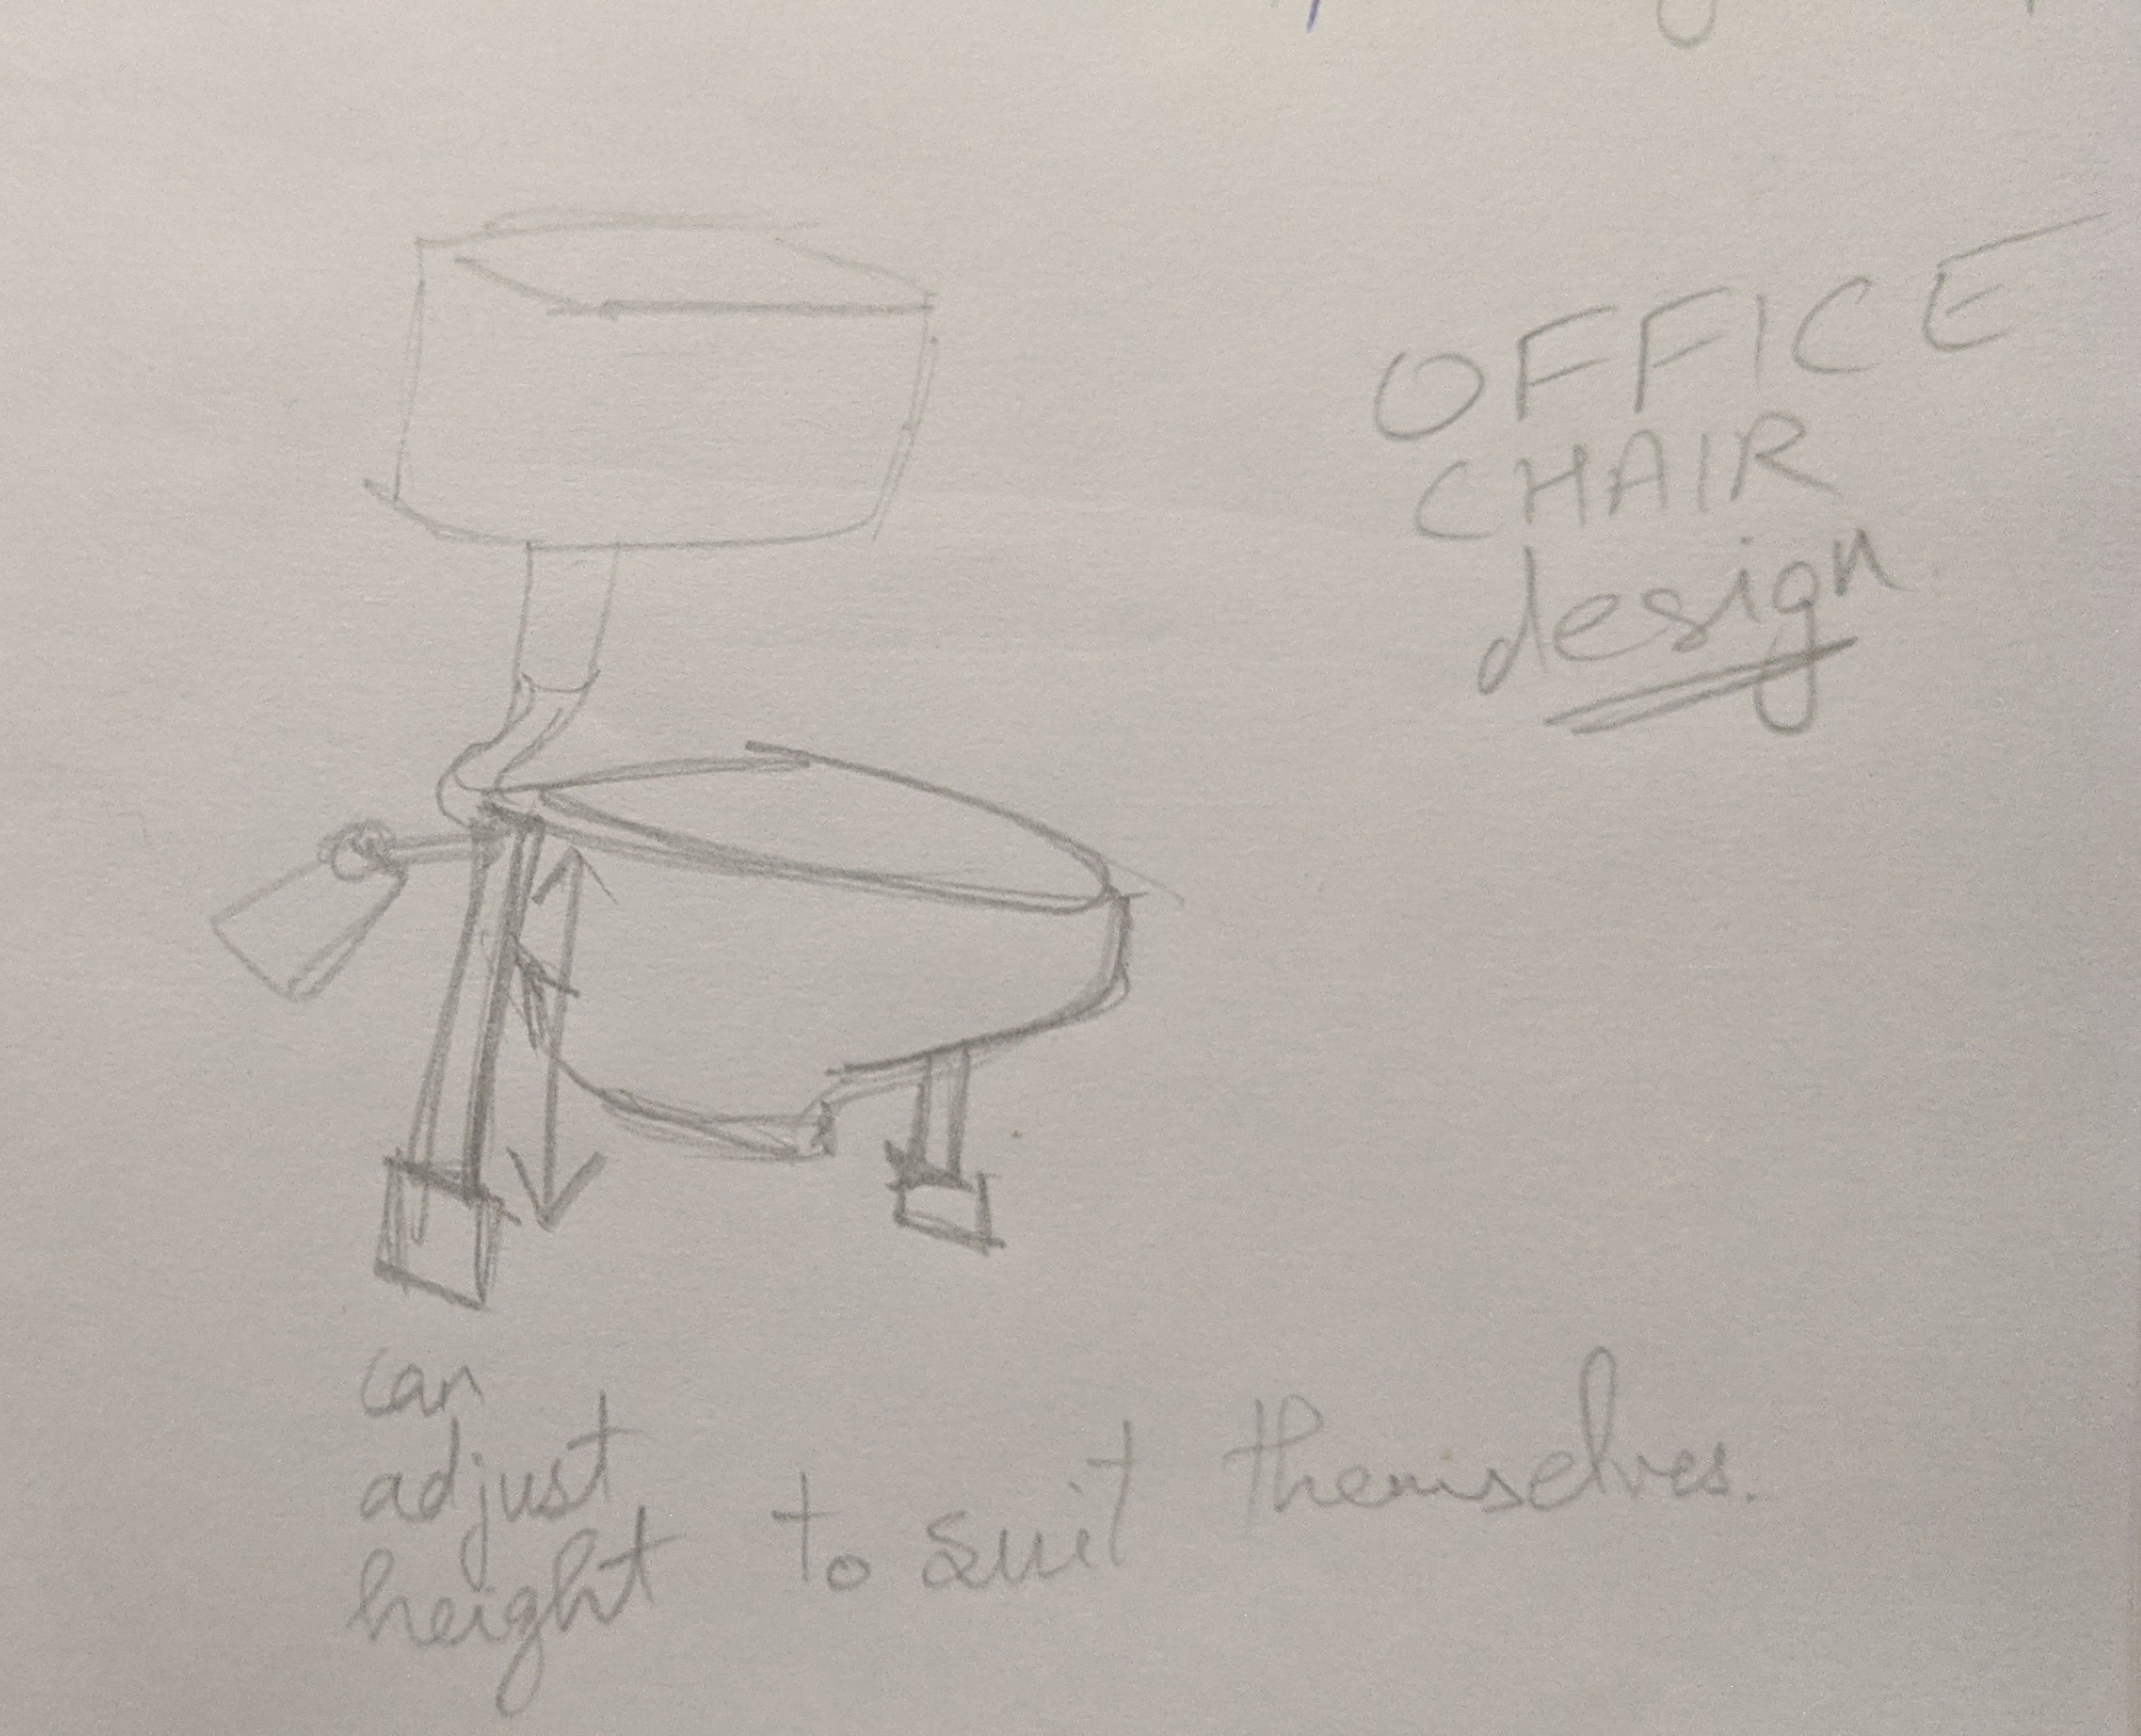 OFFICE
CHAIR
design
can
adjust
height to suit themselves.